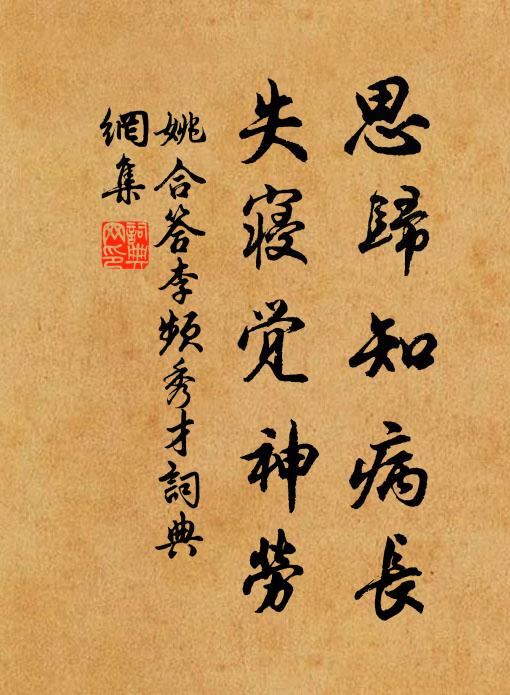 思歸知病長
失寢覚神勞
姚合答李頻秀才詞典
網集
詞典
网印